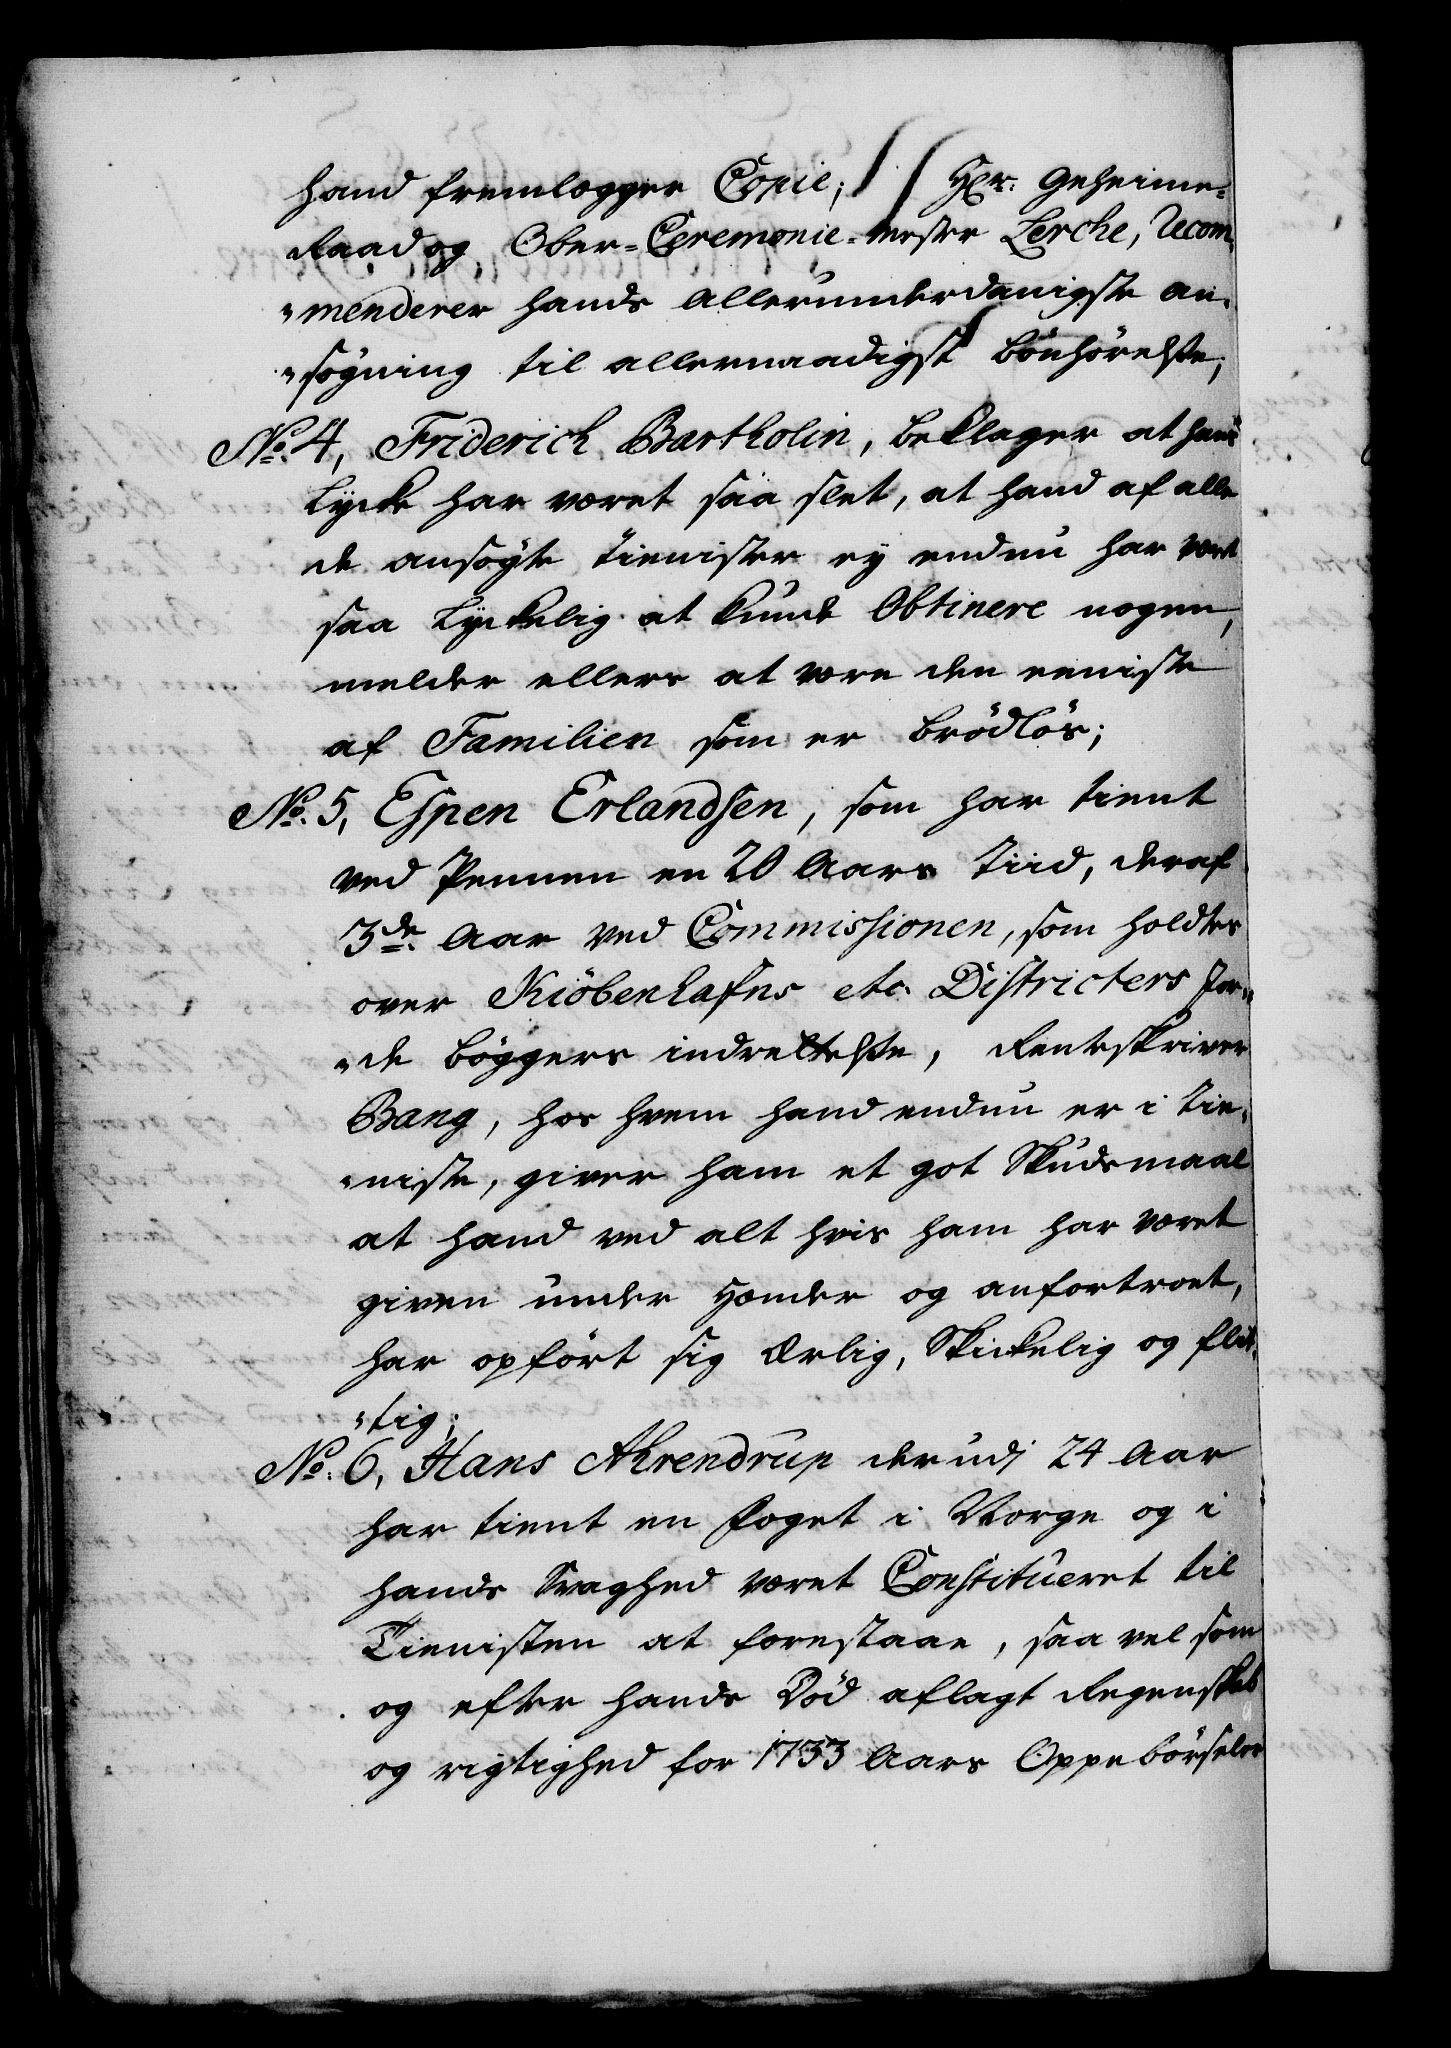 hand fremlægger Copie; Hr. Geheime-
Raad og Ober-Ceremonie-mester Lerche, Recom-
"menderer hands allerunderdanigste an-
"søgning til allernaadigst bönhörelse;
No. 4, Friderich Bartholin, beklager at hans
Lycke har været saa slet, at hand af alle
de ansögte tienister ey endnu har vært
saa Lyckelig at kunde Obtinere nogen,
melder ellers at være den eeniste
af Familien som er brödlös;
No. 5, Espen Erlandsen, som har tient
ved Pennen en 20 Aars Tiid, deraf
3de Aar ved Commissionen, som holdtes
over Kiöbenhafns etc. Districters Jor-
"de bøggers indrettelse, Renteskriver
Bang, hos hvem hand endnu er i tie-
"niste, giver ham et got Skudsmaal
at hand ved alt hvis ham har været
given under Hænder og anfortroet,
har opfört sig Ærlig, Skickelig og flit-
"tig;
No. 6, Hans Ahrendrup der udj 24 Aar
har tient en Foget i Norge og i
hands Svaghed været Constitueret til
Tienisten at forestaae, saa vel som
og efter hands Död aflagt Regenskab
og rigtighed for 1733 Aars Oppebörseler